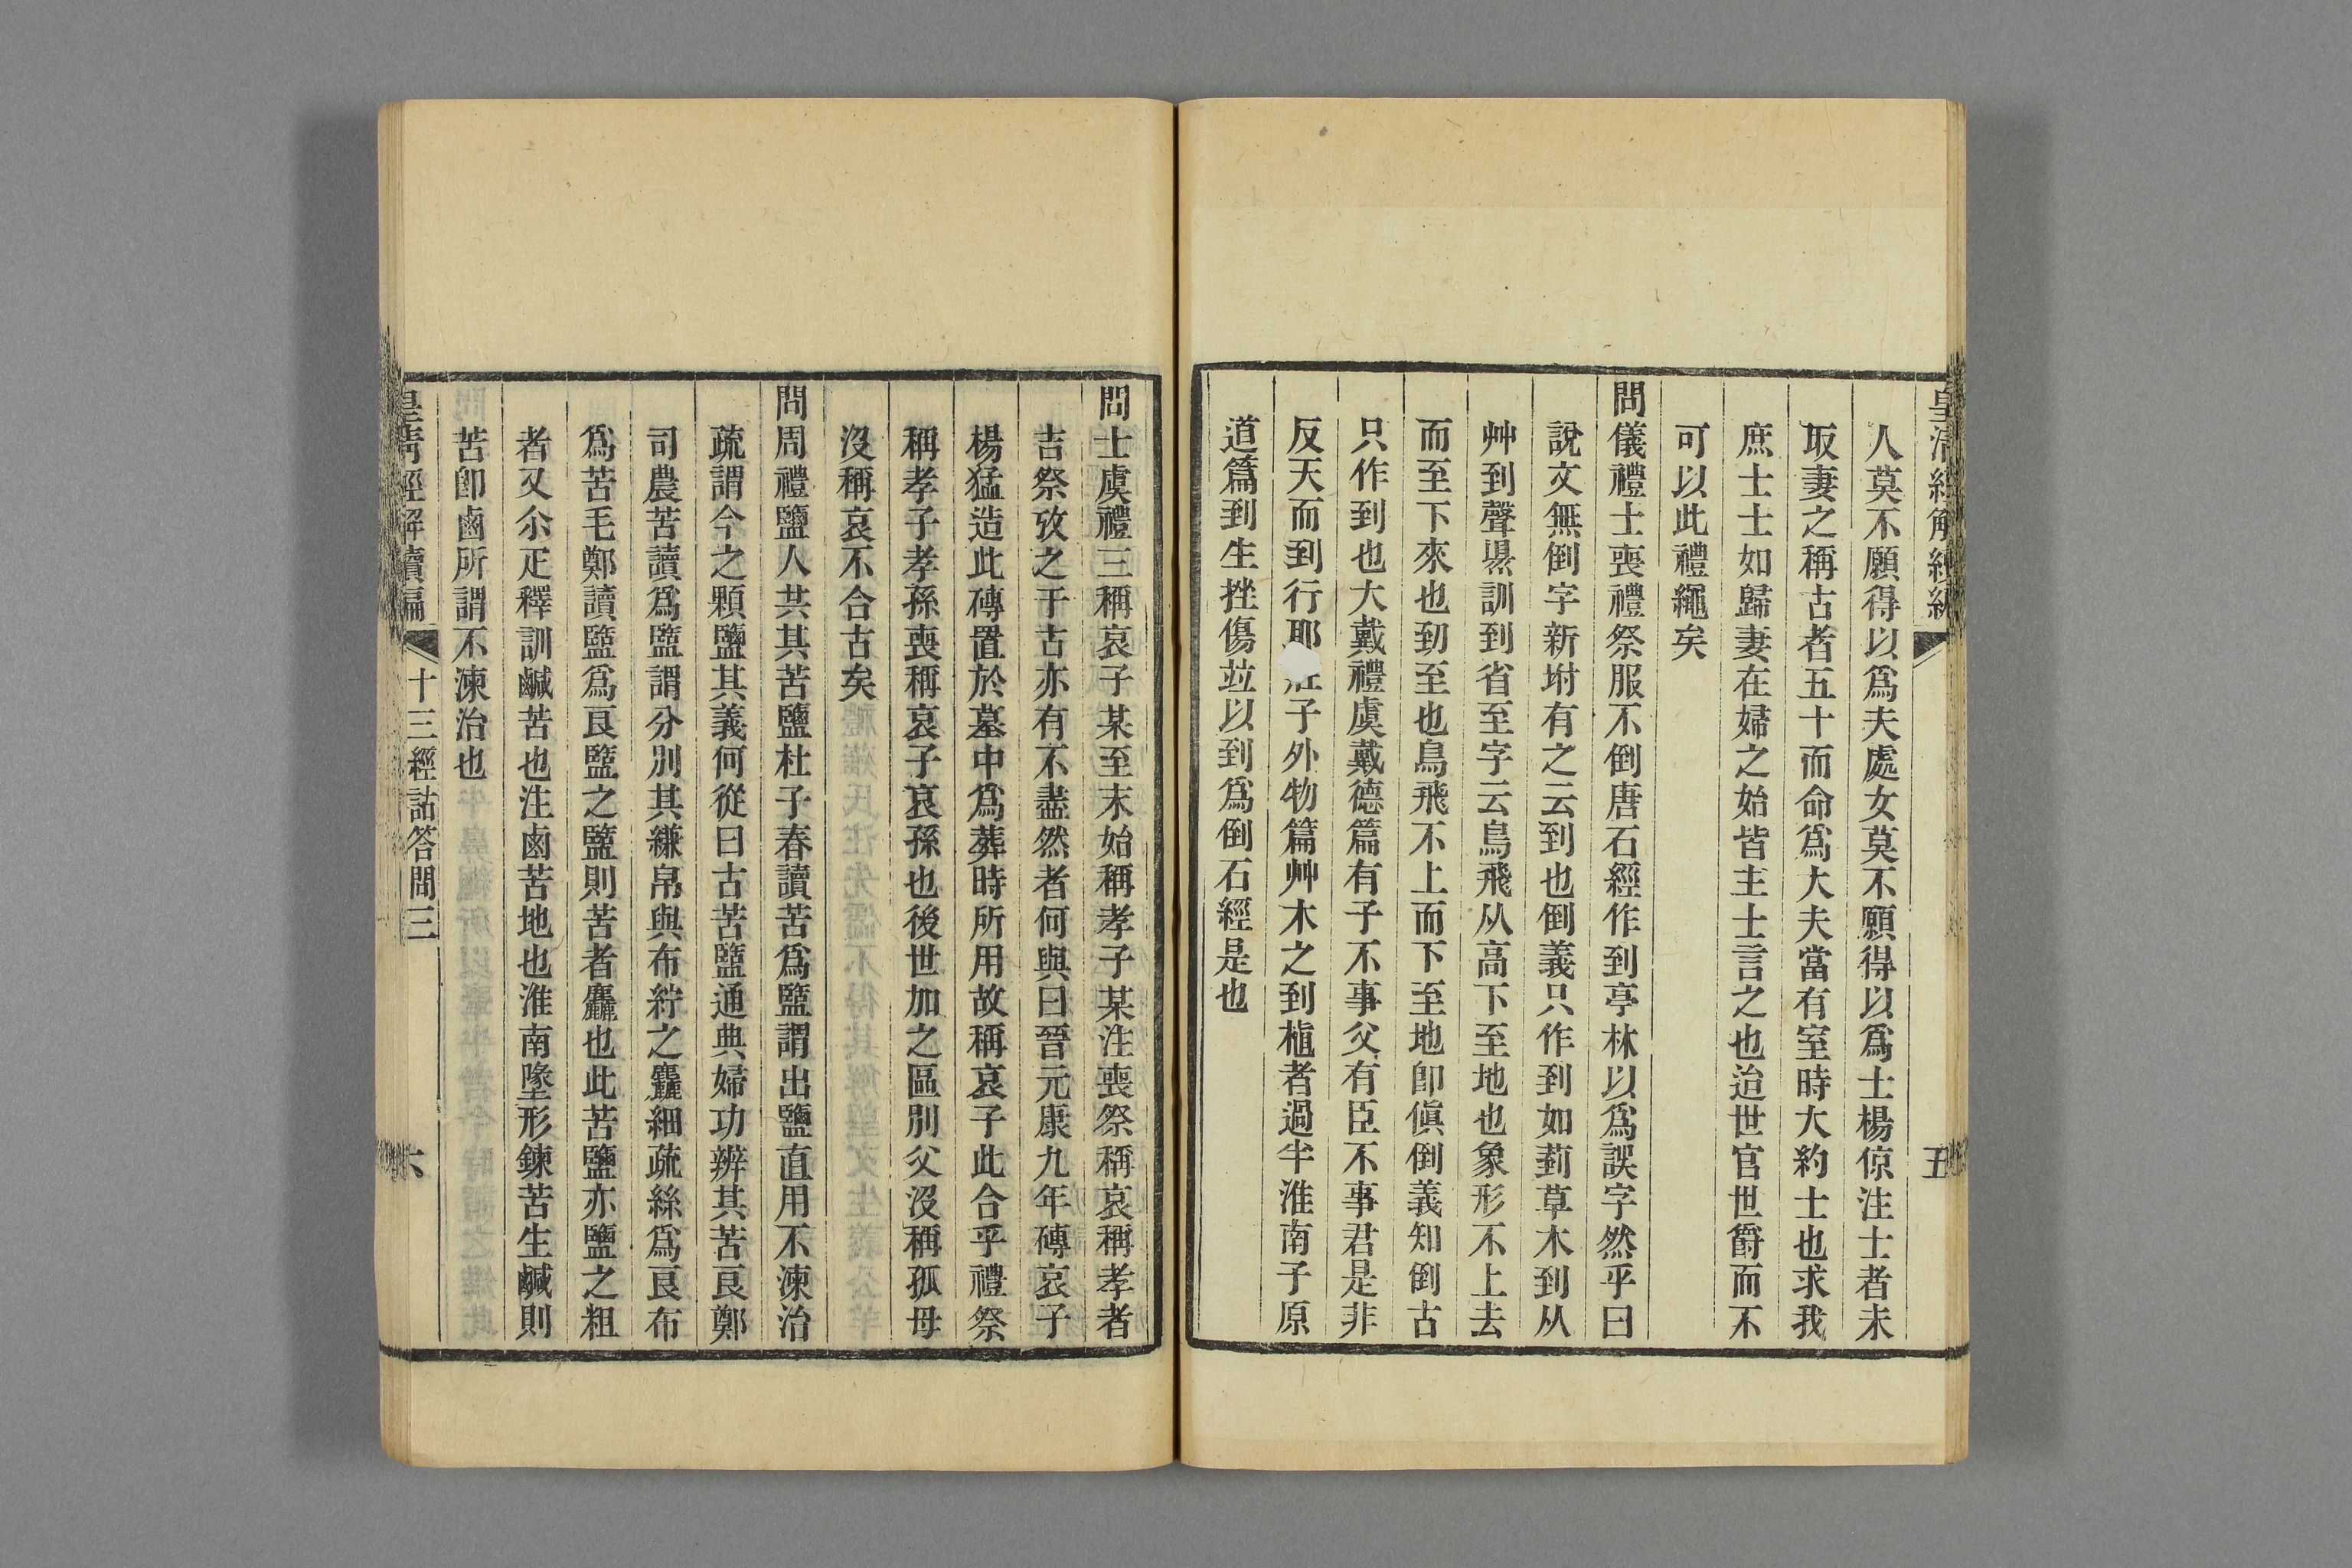 皇清經解續編
五
人莫不願得以爲夫處女莫不願得以爲士楊倞注士者未
取妻之稱古者五十而命爲大夫當有室時大約士也求我
庶士士如歸妻在婦之始皆主士言之也迨世官世爵而不
可以此禮繩矣
問儀禮士喪禮祭服不倒唐石經作到亭林以爲誤字然乎曰
說文無倒字新坿有之云到也倒義只作到如菿草木到从
艸到聲㬎訓到省至字云鳥飛从高下至地也象形不上去
而至下來也㓞至也鳥飛不上而下至地卽傎倒義知倒古
只作到也大戴禮虞戴德篇有子不事父有臣不事君是非
反天而到行耶子外物篇艸木之到植者過半淮南子原
道篇到生挫傷竝以到爲倒石經是也
問士虞禮三稱哀子某至末始稱孝子某注喪祭稱哀稱孝者
吉祭攷之于古亦有不盡然者何與曰晉元康九年磚哀子
楊猛造此磚置於墓中爲葬時所用故稱哀子此合乎禮祭
稱孝子孝孫喪稱哀子哀孫也後世加之區別父沒稱孤母
沒稱哀不合古矣
問周禮鹽人共其苦鹽杜子春讀苦爲盬謂出鹽直用不湅治
疏謂今之顆鹽其義何從曰古苦盬通典婦功辨其苦良鄭
司農苦讀爲盬謂分別其縑帛與布紵之麤細疏絲爲良布
爲苦毛鄭讀盬爲良盬之盬則苦者麤也此苦鹽亦鹽之粗
者又尒疋釋訓鹹苦也注鹵苦地也淮南墬形鍊苦生鹹則
苦卽鹵所謂不湅治也
皇清經解續編
十三經詁答問三
六